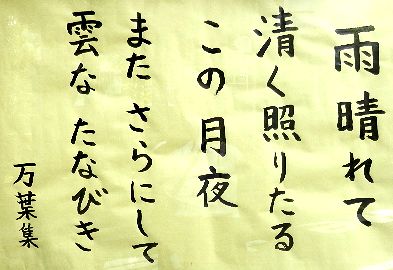 雨晴れて
清く照りたる
この 月夜
また さらにして
雲な たなびき
万葉集